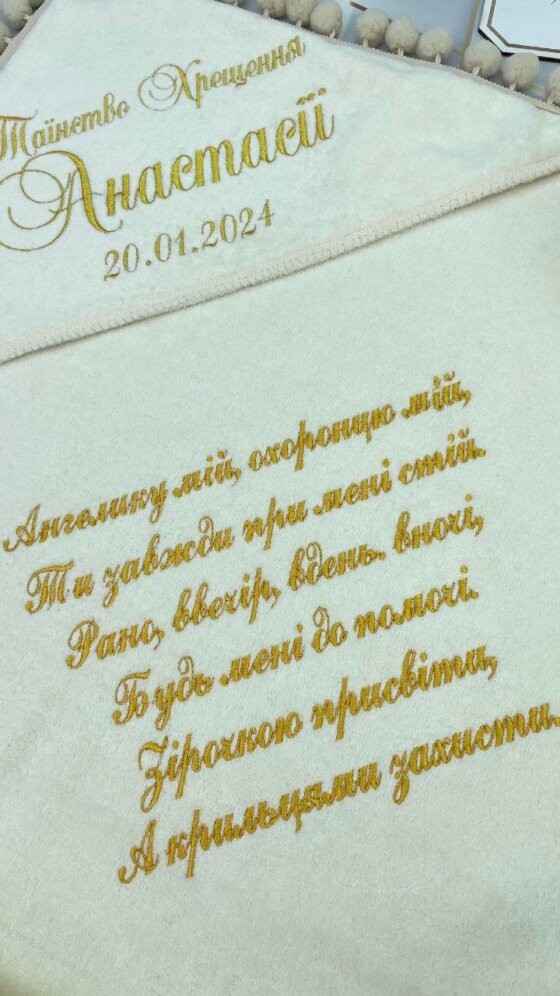 Таїнство Хрещення
Анастасії
20.01.2024
Ангелику мій, охоронцю мій,
Ти завжди при мені стій.
Рано, ввечір, вдень. вночі,
Будь мені до помочі.
Зірочкою присвіти,
А крильцями захисти.